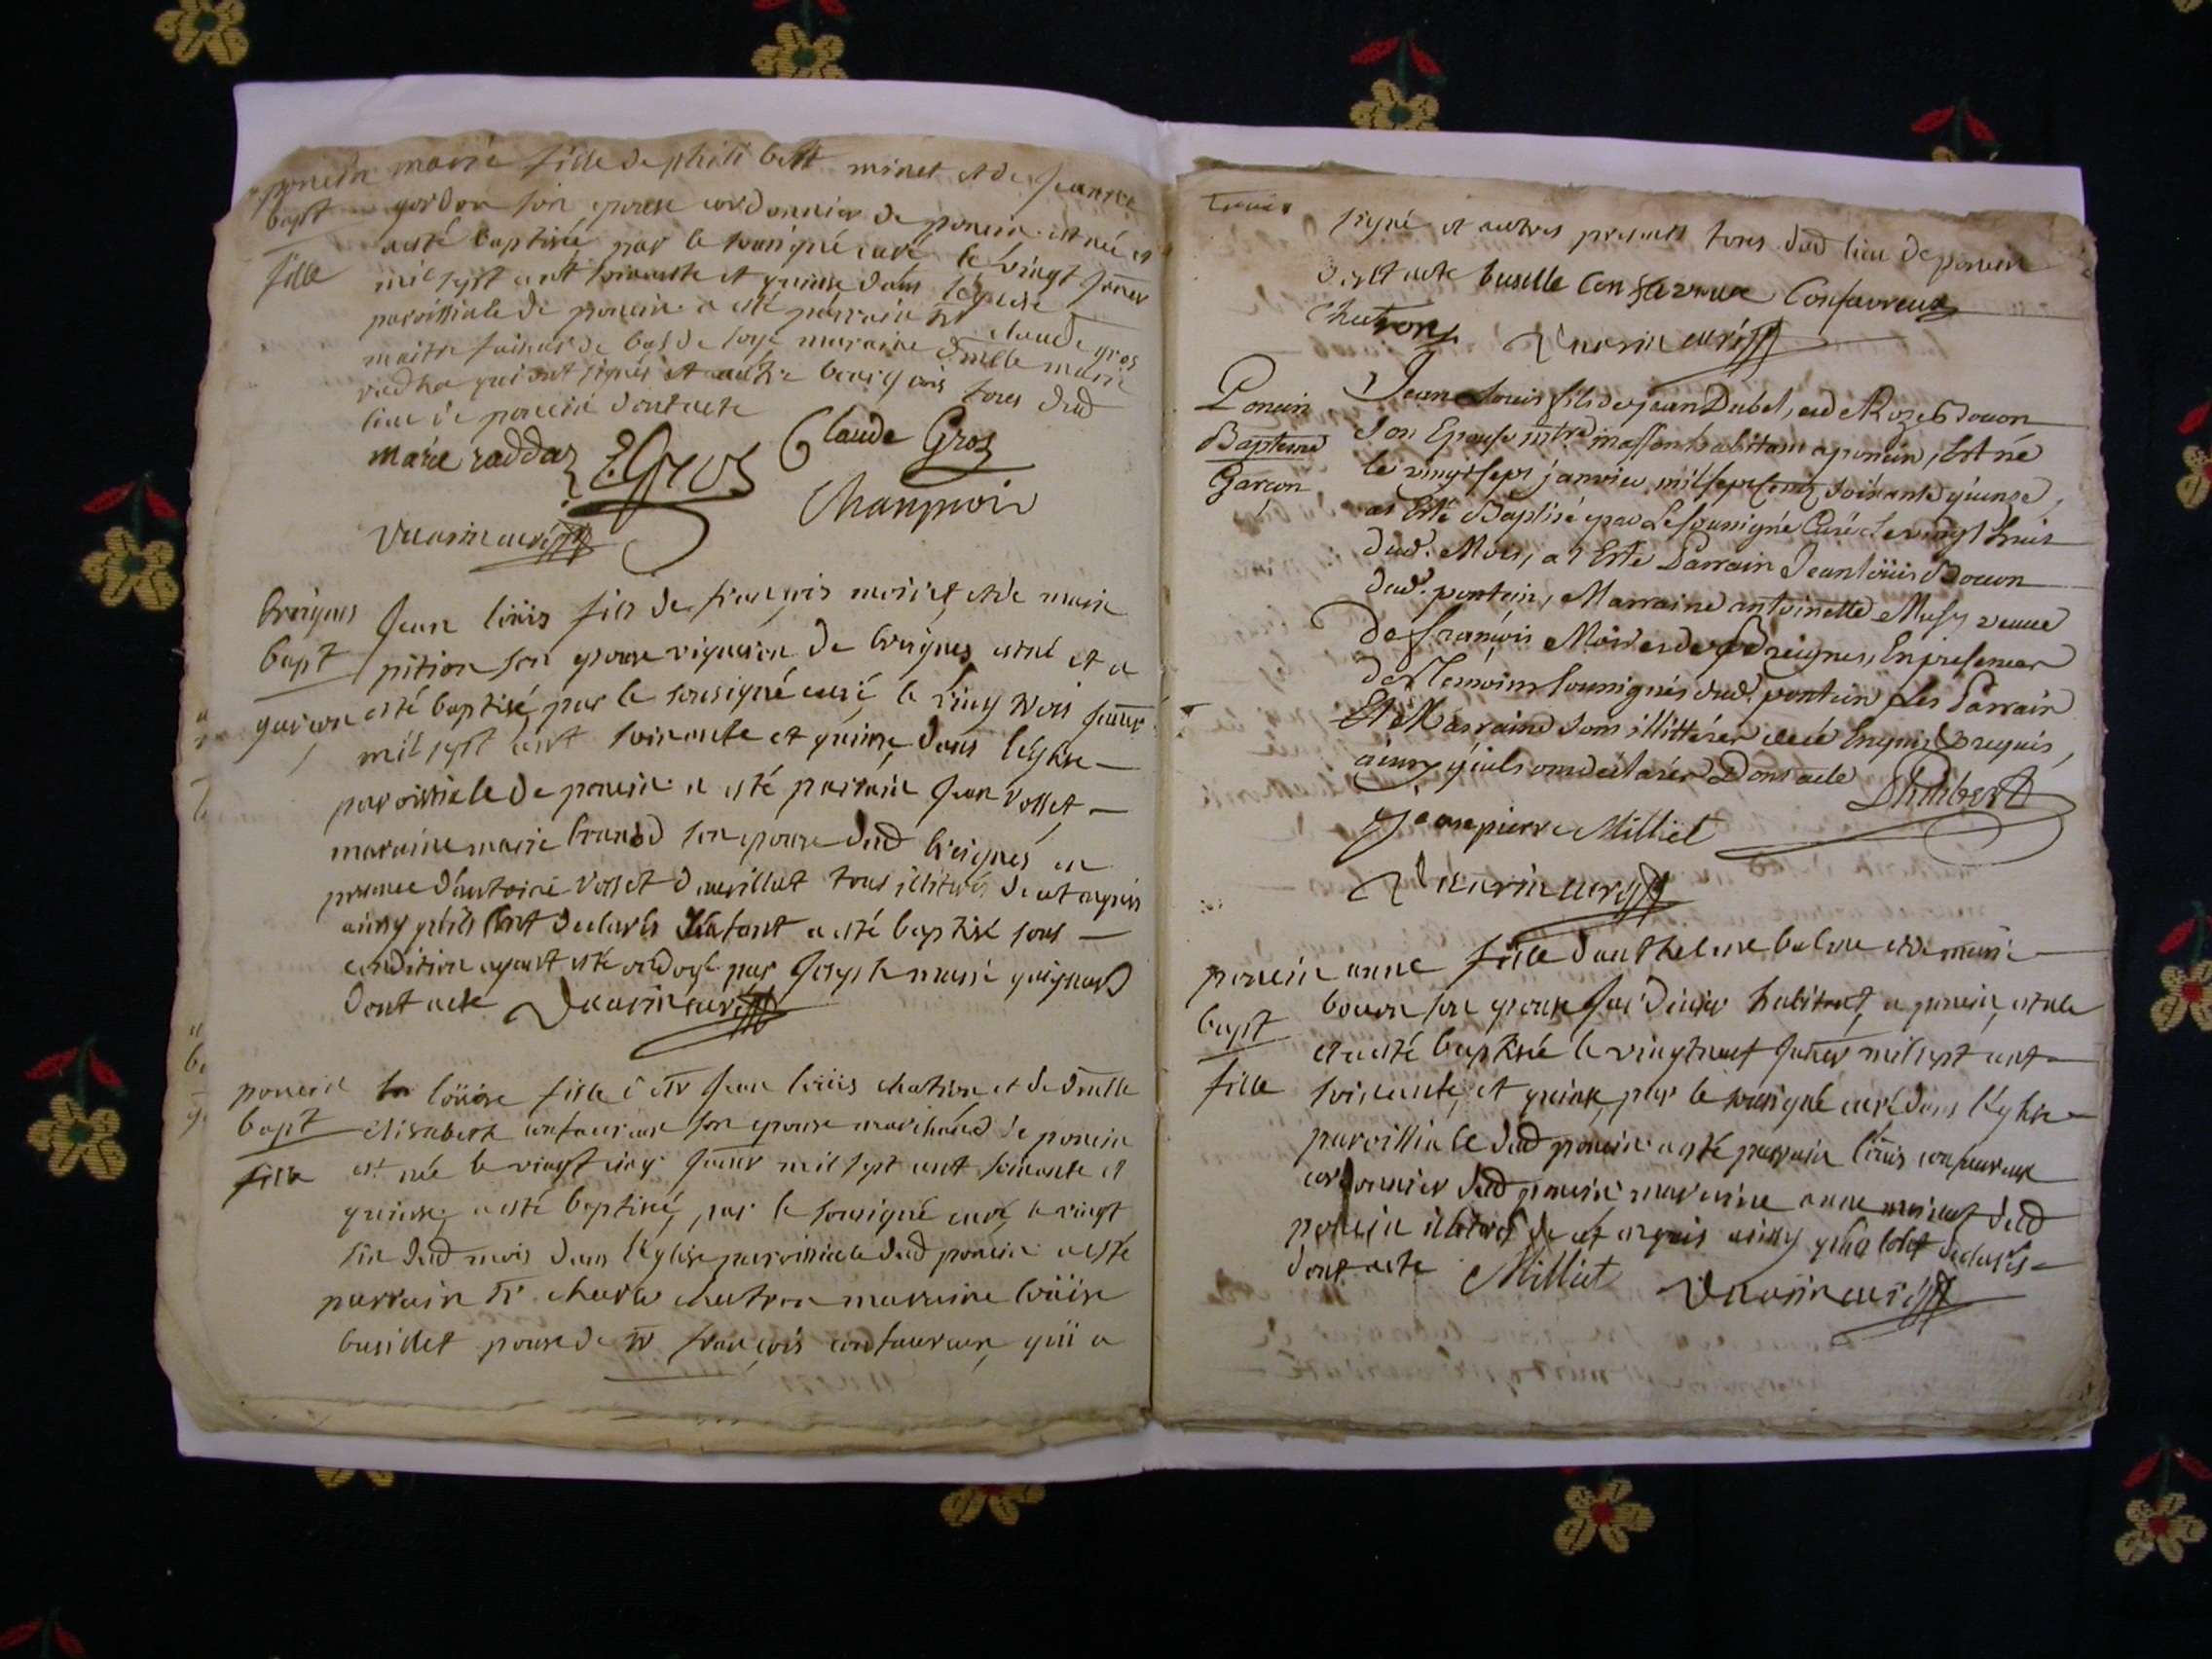 poncin marie fille de philibert minet et de jeanne
bapt gordon son epouse cordonnier de poncin est née et
fille a esté baptisée par le sousigné curé le vingt janvr
mil sept cent soixante et quinze dans l'eglise
paroissiale de poncin a esté parrain sr claude gros
maitre faiseur de bas de soye maraine dmlle marie
qui ont signés et bourgois tous dud
lieu de poncin dont acte
marie raddaz Gros Claude Gros
curé
breignes jean loüis fils de françois moriet et de marie
bapt pition son epouse vigneron de breignes est né et a
garcon esté baptisé par le sousigné curé le vingt trois janvr
mil sept cent soixante et quinze dans l'eglise
paroissiale de poncin a esté parrain jean vosset
maraine marie son epouse dud breignes en
presence d'antoine vosset tous illiterés de ce requis
ainsy qu'ils ont declarés l'enfant a esté baptisé sous
condition ayant esté ondoyé par joseph marie guignard
dont acte curé
poncin loüise fille de sr jean loüis chatron et de dmlle
bapt elisabeth confavreux son epouse marchand de poncin
fille est née le vingt cinq janvr mil sept cent soixante et
quinze a esté baptisé par le sousigné curé le vingt
six dud mois dans l'eglise paroissiale dud poncin a esté
parrain sr charle chatron maraine loüise
busillet epouse de sr françois confavreux qui a
signé et autres presents tous dud lieu de poncin
dont acte buselle Confavreux Confavreux
Chatron curé
Poncin Jean Louis fils de jean Dubel, et de Roze Bouon
Bapteme son Epouse mtre masson habitant a poncin, Est né
Garçon le vingt sept janvier mil sept cent soixante quinze,
at Esté Baptisé par Le soussigné Curé Le vingt huit
dud. Mois, at Este Parrain Jean loüis Bouon
dud. pontcin, Marraine antoinette Musy veuve
de françois de Breignes, En presence
des Temoins soussignés dud. pontcin Les Parrain
Et Marraine sont illitterés de ce Enquis & requis,
ainsy quils ont declarés Dont acte Philibert
jean pierre Milliet
curé
poncin anne fille d'anthelme balme et de marie
bapt bouon son epouse jardinier habitant a poncin est née
fille et a esté baptisée le vingt neuf janvr mil sept cent
soixante et quinze par le sousigné curé dans l'eglise
paroissiale dud poncin a esté parrain loüis confavreux
cordonnier dud poncin maraine anne dud
poncin illiterés de ce requis ainsy declarés
dont acte Milliet curé